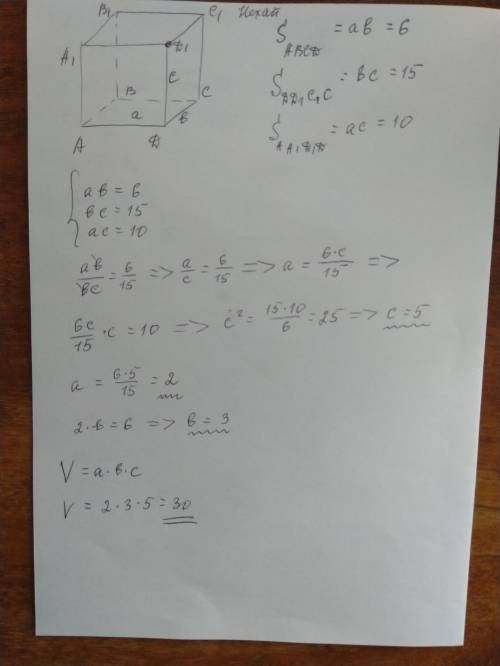 B₁ C₁ Нехай
S_ABCD = ab = 6
A₁ D₁
c
S_DD₁C₁C = bc = 15
B C
a b
A D
S_AA₁D₁D = ac = 10
{ ab = 6
bc = 15
ac = 10
ab/bc = 6/15 => a/c = 6/15 => a = 6·c/15 =>
6c/15 · c = 10 => c² = 15·10/6 = 25 => c = 5
a = 6·5/15 = 2
2·b = 6 => b = 3
V = a·b·c
V = 2·3·5 = 30